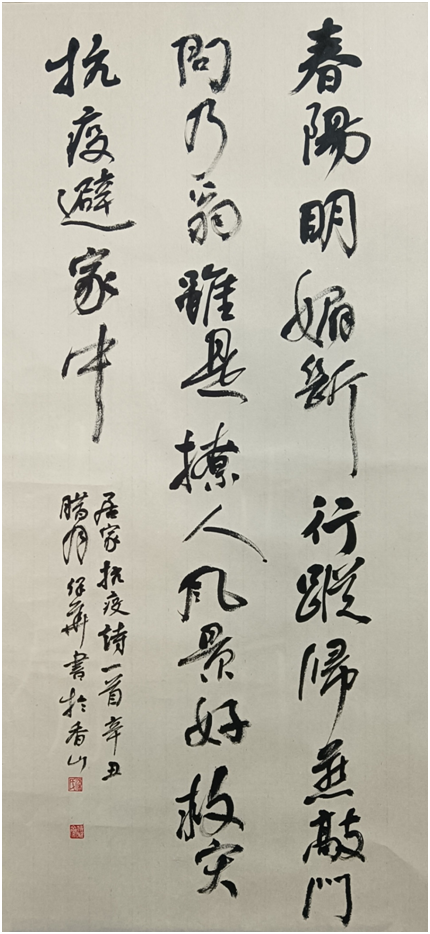 春陽明媚斷行蹤歸燕敲門
問乃翁雖是撩人風景好救灾
抗疫避家中
居家抗疫詩一首辛丑
腊月保華書於香山